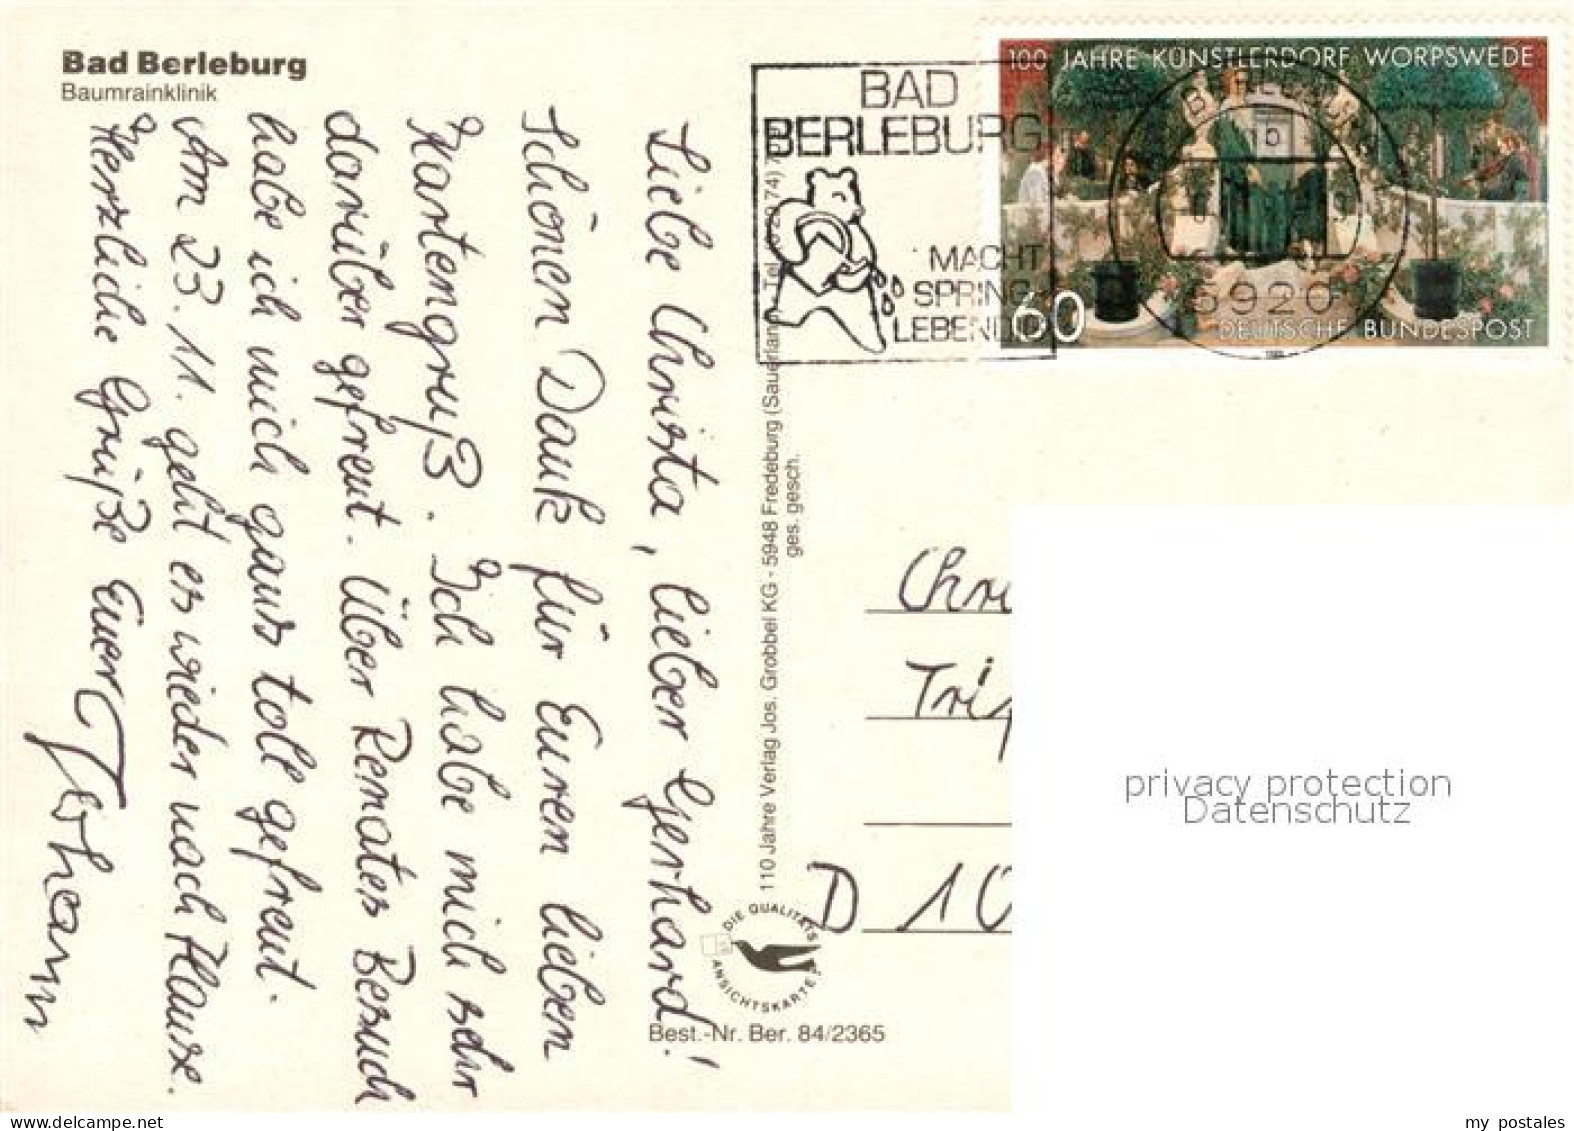 Bad Berleburg
Baumrainklinik
Liebe Christa, lieber Gerhard!
Schönen Dank für Euren lieben
Kartengruß. Ich habe mich sehr
darüber gefreut. Über Renates Besuch
habe ich mich ganz toll gefreut.
Am 23.11. geht es wieder nach Hause.
Herzliche Grüße Euer
110 Jahre Verlag Jos. Grobbel KG - 5948 Fredeburg (Sauerland)
ges. gesch.
DIE QUALITÄTS
ANSICHTSKARTE
Best.-Nr. Ber. 84/2365
BAD
BERLEBURG
MACHT
SPRING
LEBENDIG
100 JAHRE KÜNSTLERDORF WORPSWEDE
60
DEUTSCHE BUNDESPOST
5920
Chri
Tri
D 10
privacy protection
Datenschutz
delcampe.net
my_postales